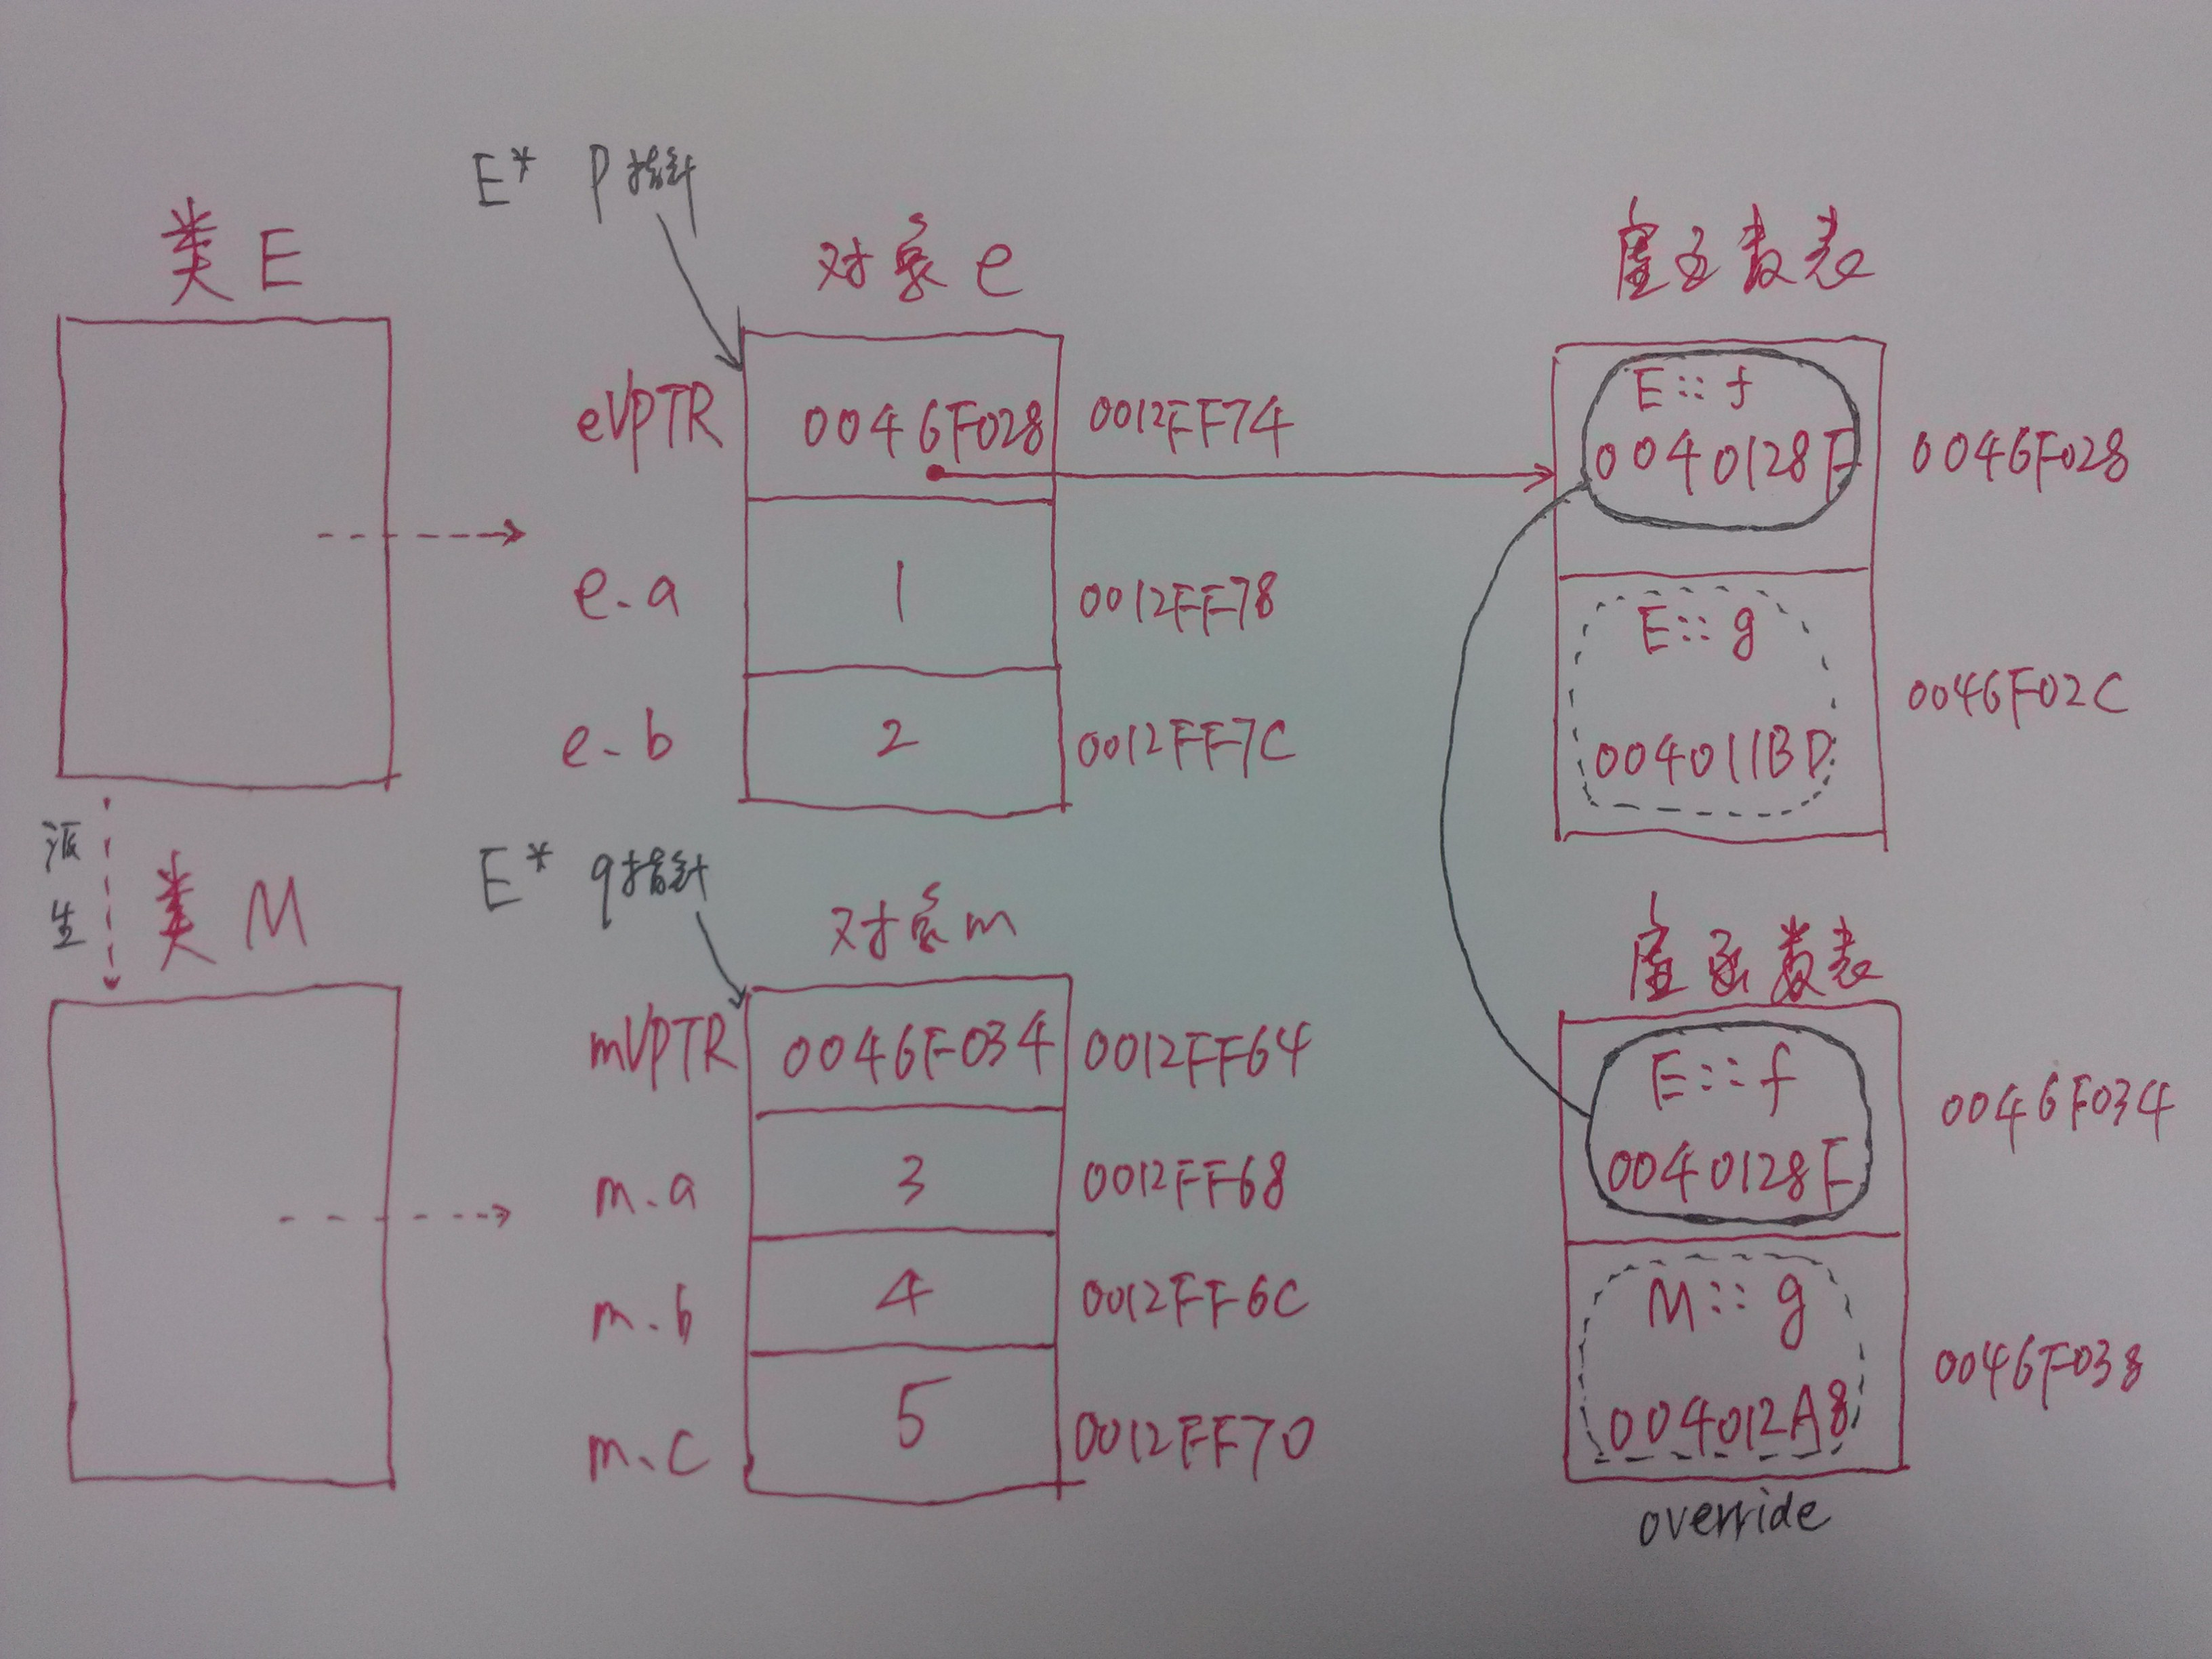 E* p指针
类 E
对象 e
虚函数表
eVPTR
0046F028
0012FF74
E::f
0040128F
0046F028
e.a
1
0012FF78
E::g
004011BD
0046F02C
e.b
2
0012FF7C
派生
类 M
E* q指针
对象 m
虚函数表
mVPTR
0046F034
0012FF64
E::f
0040128F
0046F034
m.a
3
0012FF68
m.b
4
0012FF6C
M::g
004012A8
0046F038
m.c
5
0012FF70
override